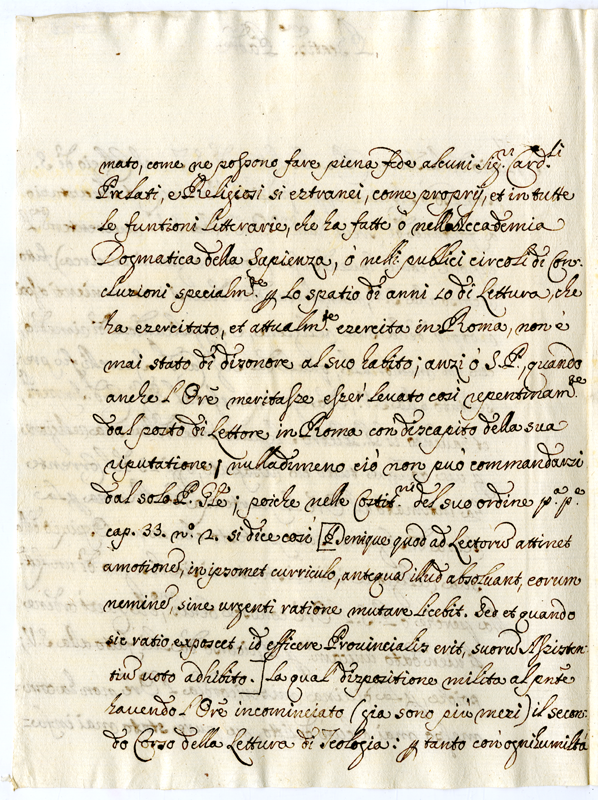 mato, come ne possono fare piena fede alcuni Sig.ri Card.li
Prelati, e Religiosi si eztranei, come proprij, et in tutte
le funtioni Litterarie, che ha fatte ò nella Accademia
Dogmatica della Sapienza, ò nelli publici circoli di Con-
cluzioni specialm.te p lo spatio di anni 10 di Lettura, che
ha ezercitato, et attualm.te ezercita in Roma, non è
mai stato di dizonore al suo habito; anzi ò S.P. quando
anche l'Ore meritasse esser levato cozi repentinam.te
dal posto di Lettore in Roma con dizcapito della sua
riputatione; nulladimeno ciò non può commandarzi
dal solo P. Gle; poiche nelle Coztit.ni del suo ordine p.a p.e
cap. 33. n.o 2. si dice cozi [Denique quod ad Lectorũ attinet
amotionẽ, in ipsomet curriculo, antequã illud absoluant, eorum
neminẽ, sine urgenti ratione mutare licebit. Sed et quando
sic ratio exposcet, id efficere Provincialis erit, suorũ Assisten-
tiũ voto adhibito.] La qual dizpozitione milita al pnte
havendo l'Ore incominciato (già sono più mezi) il secon-
do Corso della Lettura di Teologia: p tanto con ogni humiltà